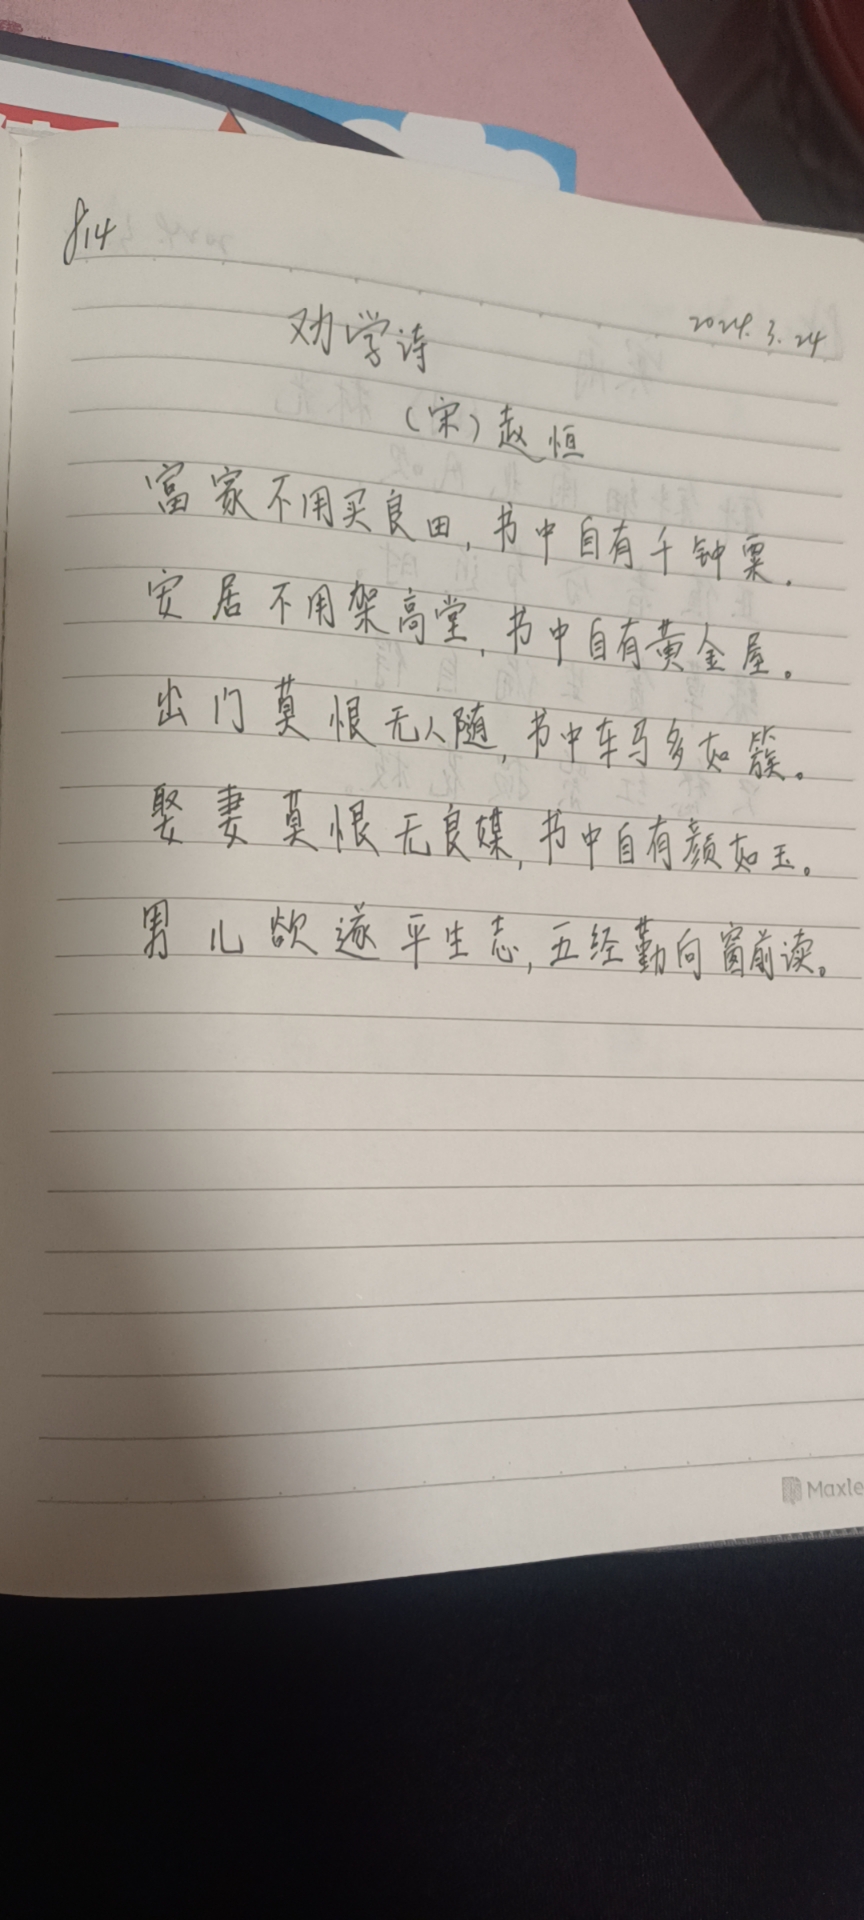 P14
2024.3.24
劝学诗
（宋）赵恒
富家不用买良田，书中自有千钟粟。
安居不用架高堂，书中自有黄金屋。
出门莫恨无人随，书中车马多如簇。
娶妻莫恨无良媒，书中自有颜如玉。
男儿欲遂平生志，五经勤向窗前读。
Maxle